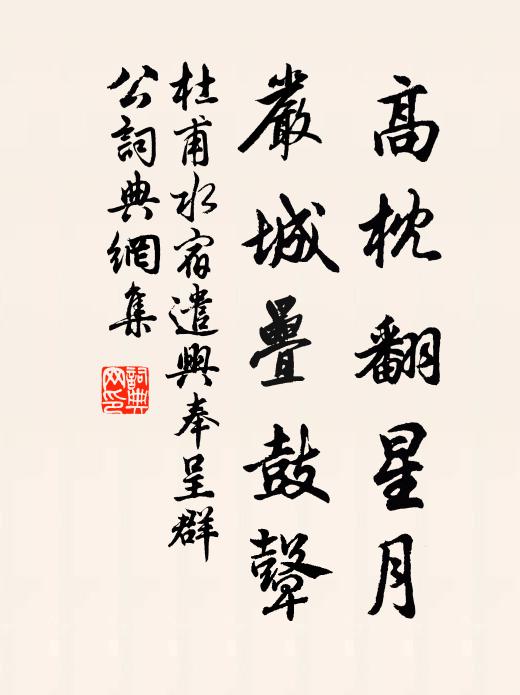 高枕翻星月
嚴城疊鼓鼙
杜甫水宿遣興奉呈群
公詞典網集